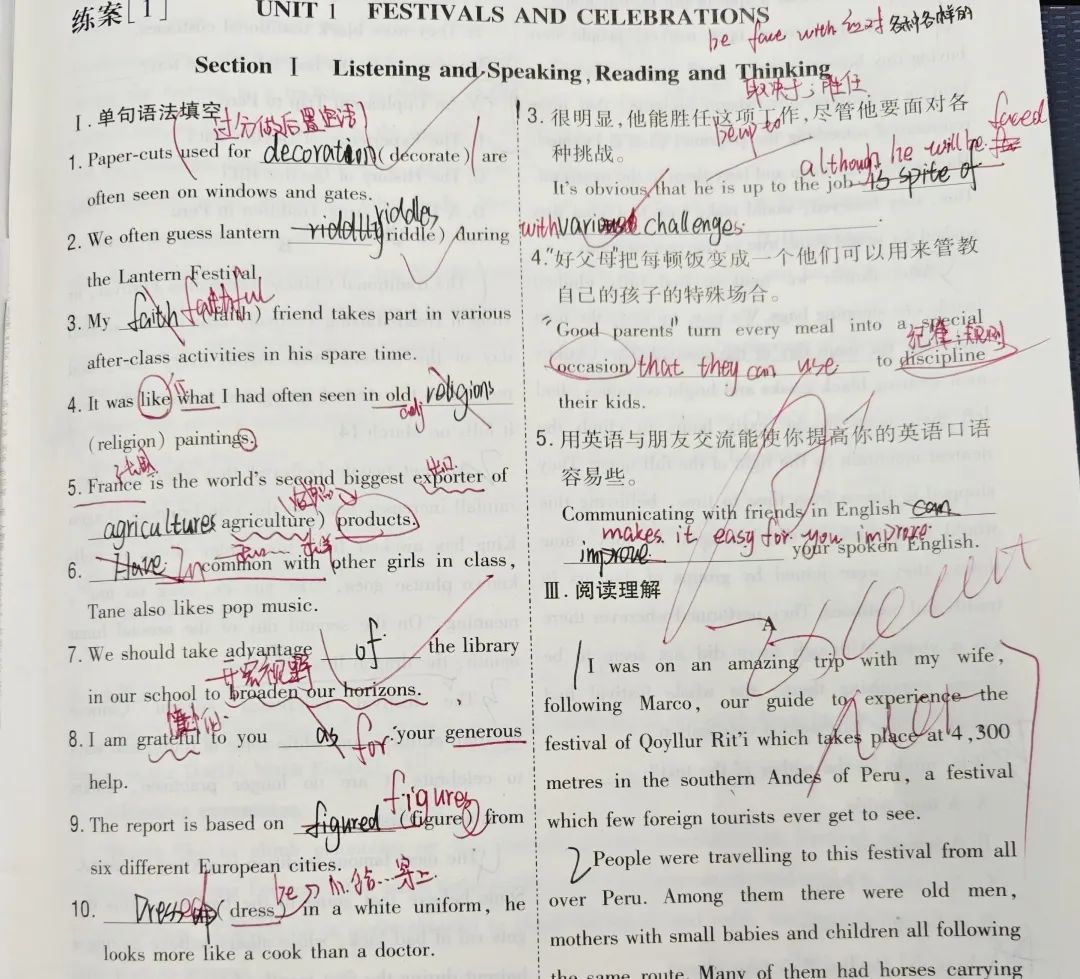 练案[1]
UNIT 1 FESTIVALS AND CELEBRATIONS
be face with 面对 各种各样的
Section Ⅰ Listening and Speaking, Reading and Thinking
Ⅰ.单句语法填空
过分做后置定语
1. Paper-cuts used for decoration (decorate) are
often seen on windows and gates.
riddles
2. We often guess lantern riddly (riddle) during
the Lantern Festival.
faithful
3. My faith (faith) friend takes part in various
after-class activities in his spare time.
4. It was like what I had often seen in old religions
adj
(religion) paintings.
法国 出口
5. France is the world's second biggest exporter of
agricultures (agriculture) products.
6. Have In common with other girls in class,
Tane also likes pop music.
7. We should take advantage of the library
开宽视野
in our school to broaden our horizons.
8. I am grateful to you as for your generous
help.
figures
9. The report is based on figured (figure) from
six different European cities.
10. Dressed up (dress) in a white uniform, he
looks more like a cook than a doctor.
取决于；胜任
3. 很明显,他能胜任这项工作,尽管他要面对各
be up to
种挑战。
although he will be faced
It's obvious that he is up to the job is spite of
with various challenges.
4."好父母"把每顿饭变成一个他们可以用来管教
自己的孩子的特殊场合。
"Good parents" turn every meal into a special
纪律；规则
occasion that they can use to discipline
their kids.
5. 用英语与朋友交流能使你提高你的英语口语
容易些。
Communicating with friends in English can
makes it easy for you improve
improve your spoken English.
Ⅲ.阅读理解
A
1 I was on an amazing trip with my wife,
following Marco, our guide to experience the
festival of Qoyllur Rit'i which takes place at 4,300
metres in the southern Andes of Peru, a festival
which few foreign tourists ever get to see.
2 People were travelling to this festival from all
over Peru. Among them there were old men,
mothers with small babies and children all following
the same route. Many of them had horses carrying